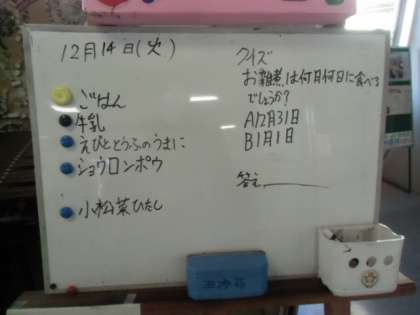 12月14日(火)
ごはん
牛乳
えびととうふのうまに
ショウロンポウ
小松菜ひたし
クイズ
お雑煮は何月何日に食べる
でしょうか?
A12月31日
B1月1日
答え